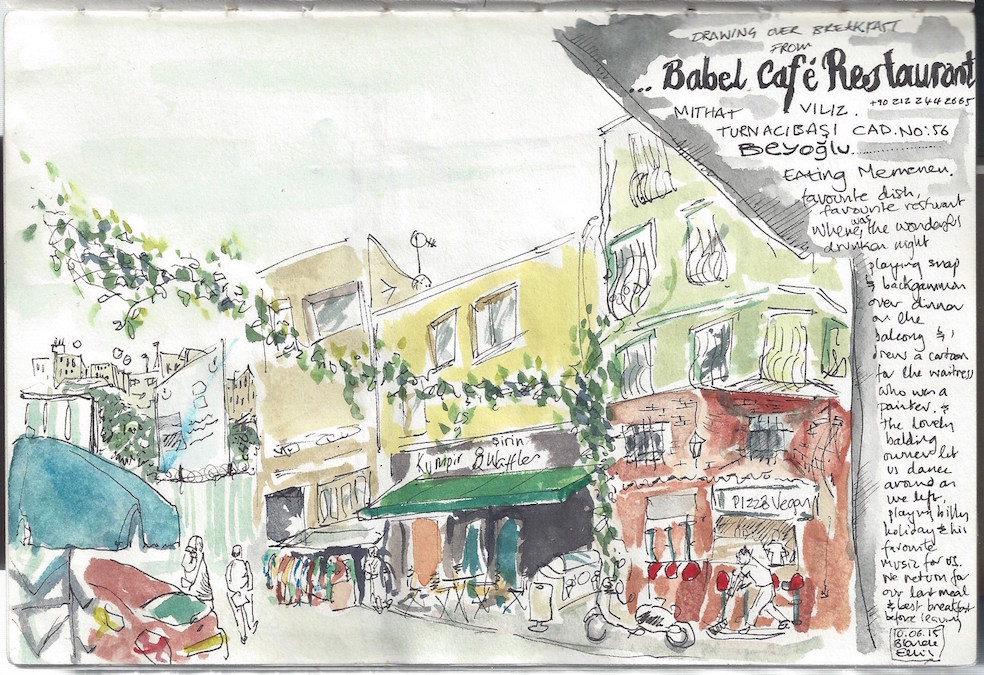 DRAWING OVER BREAKFAST
FROM
... Babel Café Restaurant
+90 212 244 2665
MITHAT VILIZ.
TURNACIBAŞI CAD. NO: 56
Beyoğlu
EATING Memenen.
favourite dish,
favourite restuant
where was the wonderful
drunken night
playing snap
& backgammon
over dinner
on the
balcony &
drew a cartoon
for the waitress
who was a
painter. &
the lovely
balding
owner let
us dance
around as
we left,
playing billy
holiday & his
favourite
music for us.
We return for
our last meal
& last breakfast
before leaving
10.06.15
Şirin
Kumpir & Waffles
PIZZA Vegan